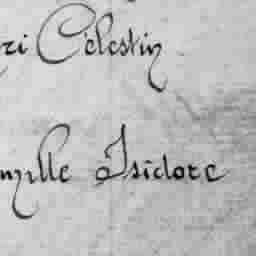 ri Célestin
mille Isidore